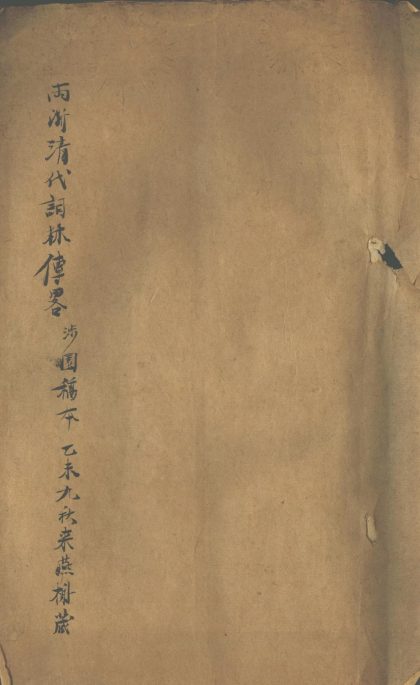 兩浙清代詞林傳畧 涉園稿本 乙未九秋来燕榭藏